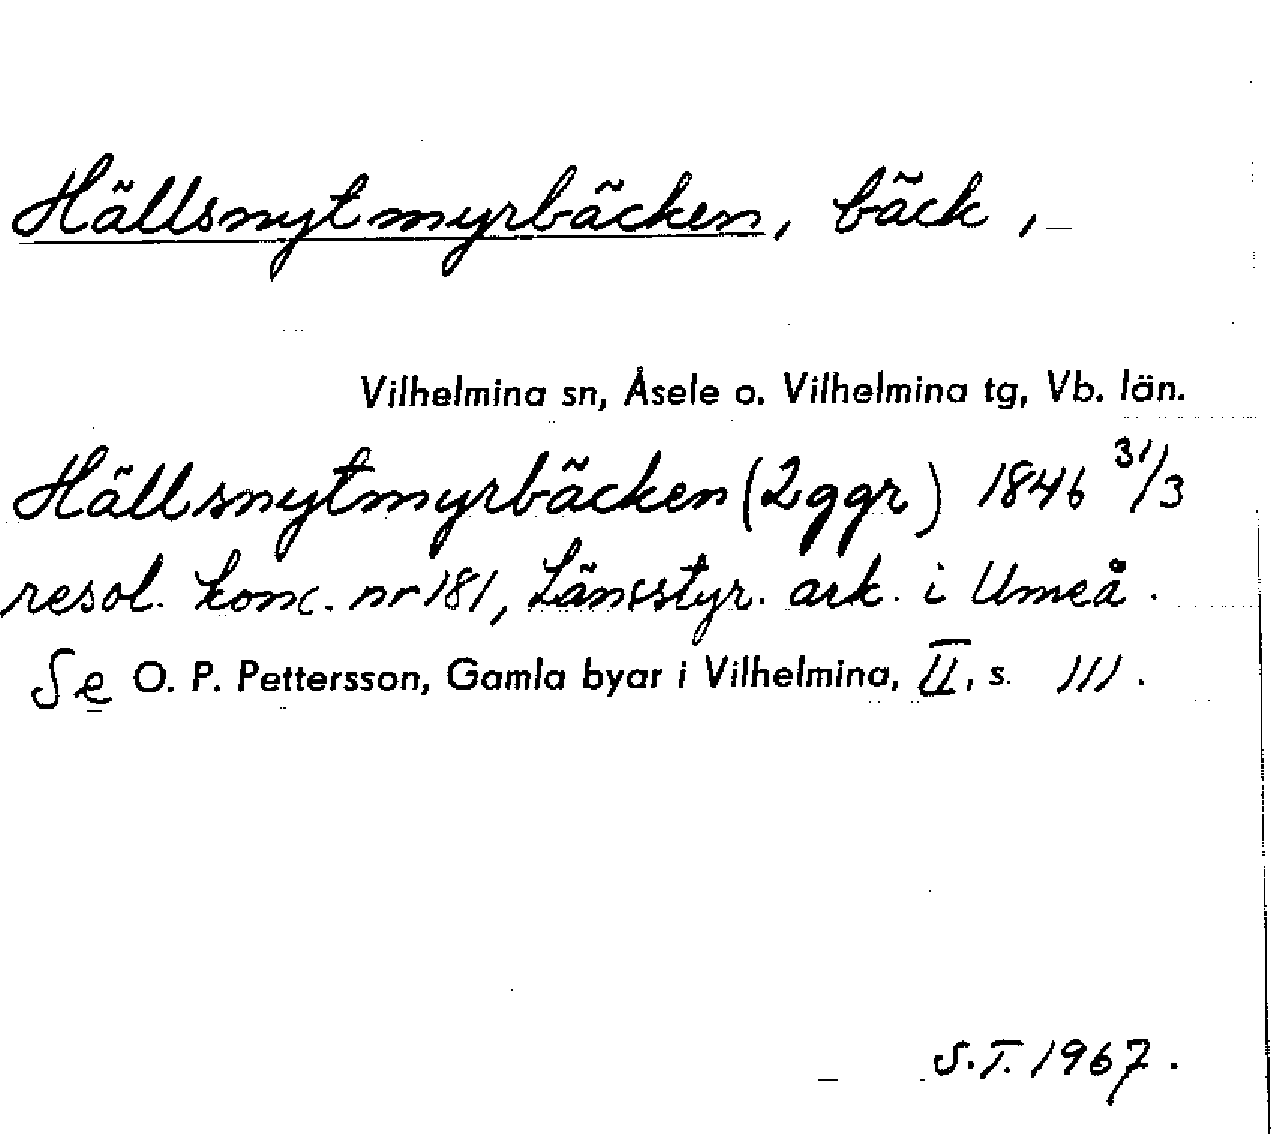 Hällsnytmyrbäcken, bäck,
Vilhelmina sn, Åsele o. Vilhelmina tg, Vb. län.
Hällsnytmyrbäcken (2 ggr) 1846 31/3
resol. konc. nr 181, Länsstyr. ark. i Umeå.
Se O. P. Pettersson, Gamla byar i Vilhelmina, II, s. 111.
S.T. 1967.